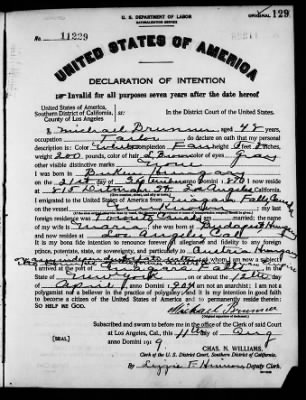 U. S. DEPARTMENT OF LABOR
NATURALIZATION SERVICE
ORIGINAL 129
No. 11229
UNITED STATES OF AMERICA
DECLARATION OF INTENTION
Invalid for all purposes seven years after the date hereof
United States of America,
Southern District of California,
County of Los Angeles
ss:
In the District Court of the United States.
I, Michael Brunner, aged 48 years,
occupation Tailor, do declare on oath that my personal
description is: Color White, complexion Fair, height feet inches,
weight 200 pounds, color of hair Brown, color of eyes Gray
other visible distinctive marks
I was born in Hungary
on the 21st day of September, anno Domini 1870; I now reside
at Los Angeles, Calif.
I emigrated to the United States of America from Niagara Falls Canada
on the vessel; my last
foreign residence was Toronto Canada; I am married; the name
of my wife is Maria; she was born at Budapest Hungary
and now resides at Los Angeles Calif
It is my bona fide intention to renounce forever all allegiance and fidelity to any foreign
prince, potentate, state, or sovereignty, and particularly to Austria Hungary
of whom I am now a subject;
I arrived at the port of Niagara, in the
State of New York, on or about the 12th day
of April, anno Domini; I am not an anarchist; I am not a
polygamist nor a believer in the practice of polygamy; and it is my intention in good faith
to become a citizen of the United States of America and to permanently reside therein:
SO HELP ME GOD.
Michael Brunner
Subscribed and sworn to before me in the office of the Clerk of said Court
at Los Angeles, Cal., this 11th day of Aug
anno Domini 1919.
[SEAL]
CHAS. N. WILLIAMS,
Clerk of the U. S. District Court, Southern District of California.
By Lizzie F., Deputy Clerk.